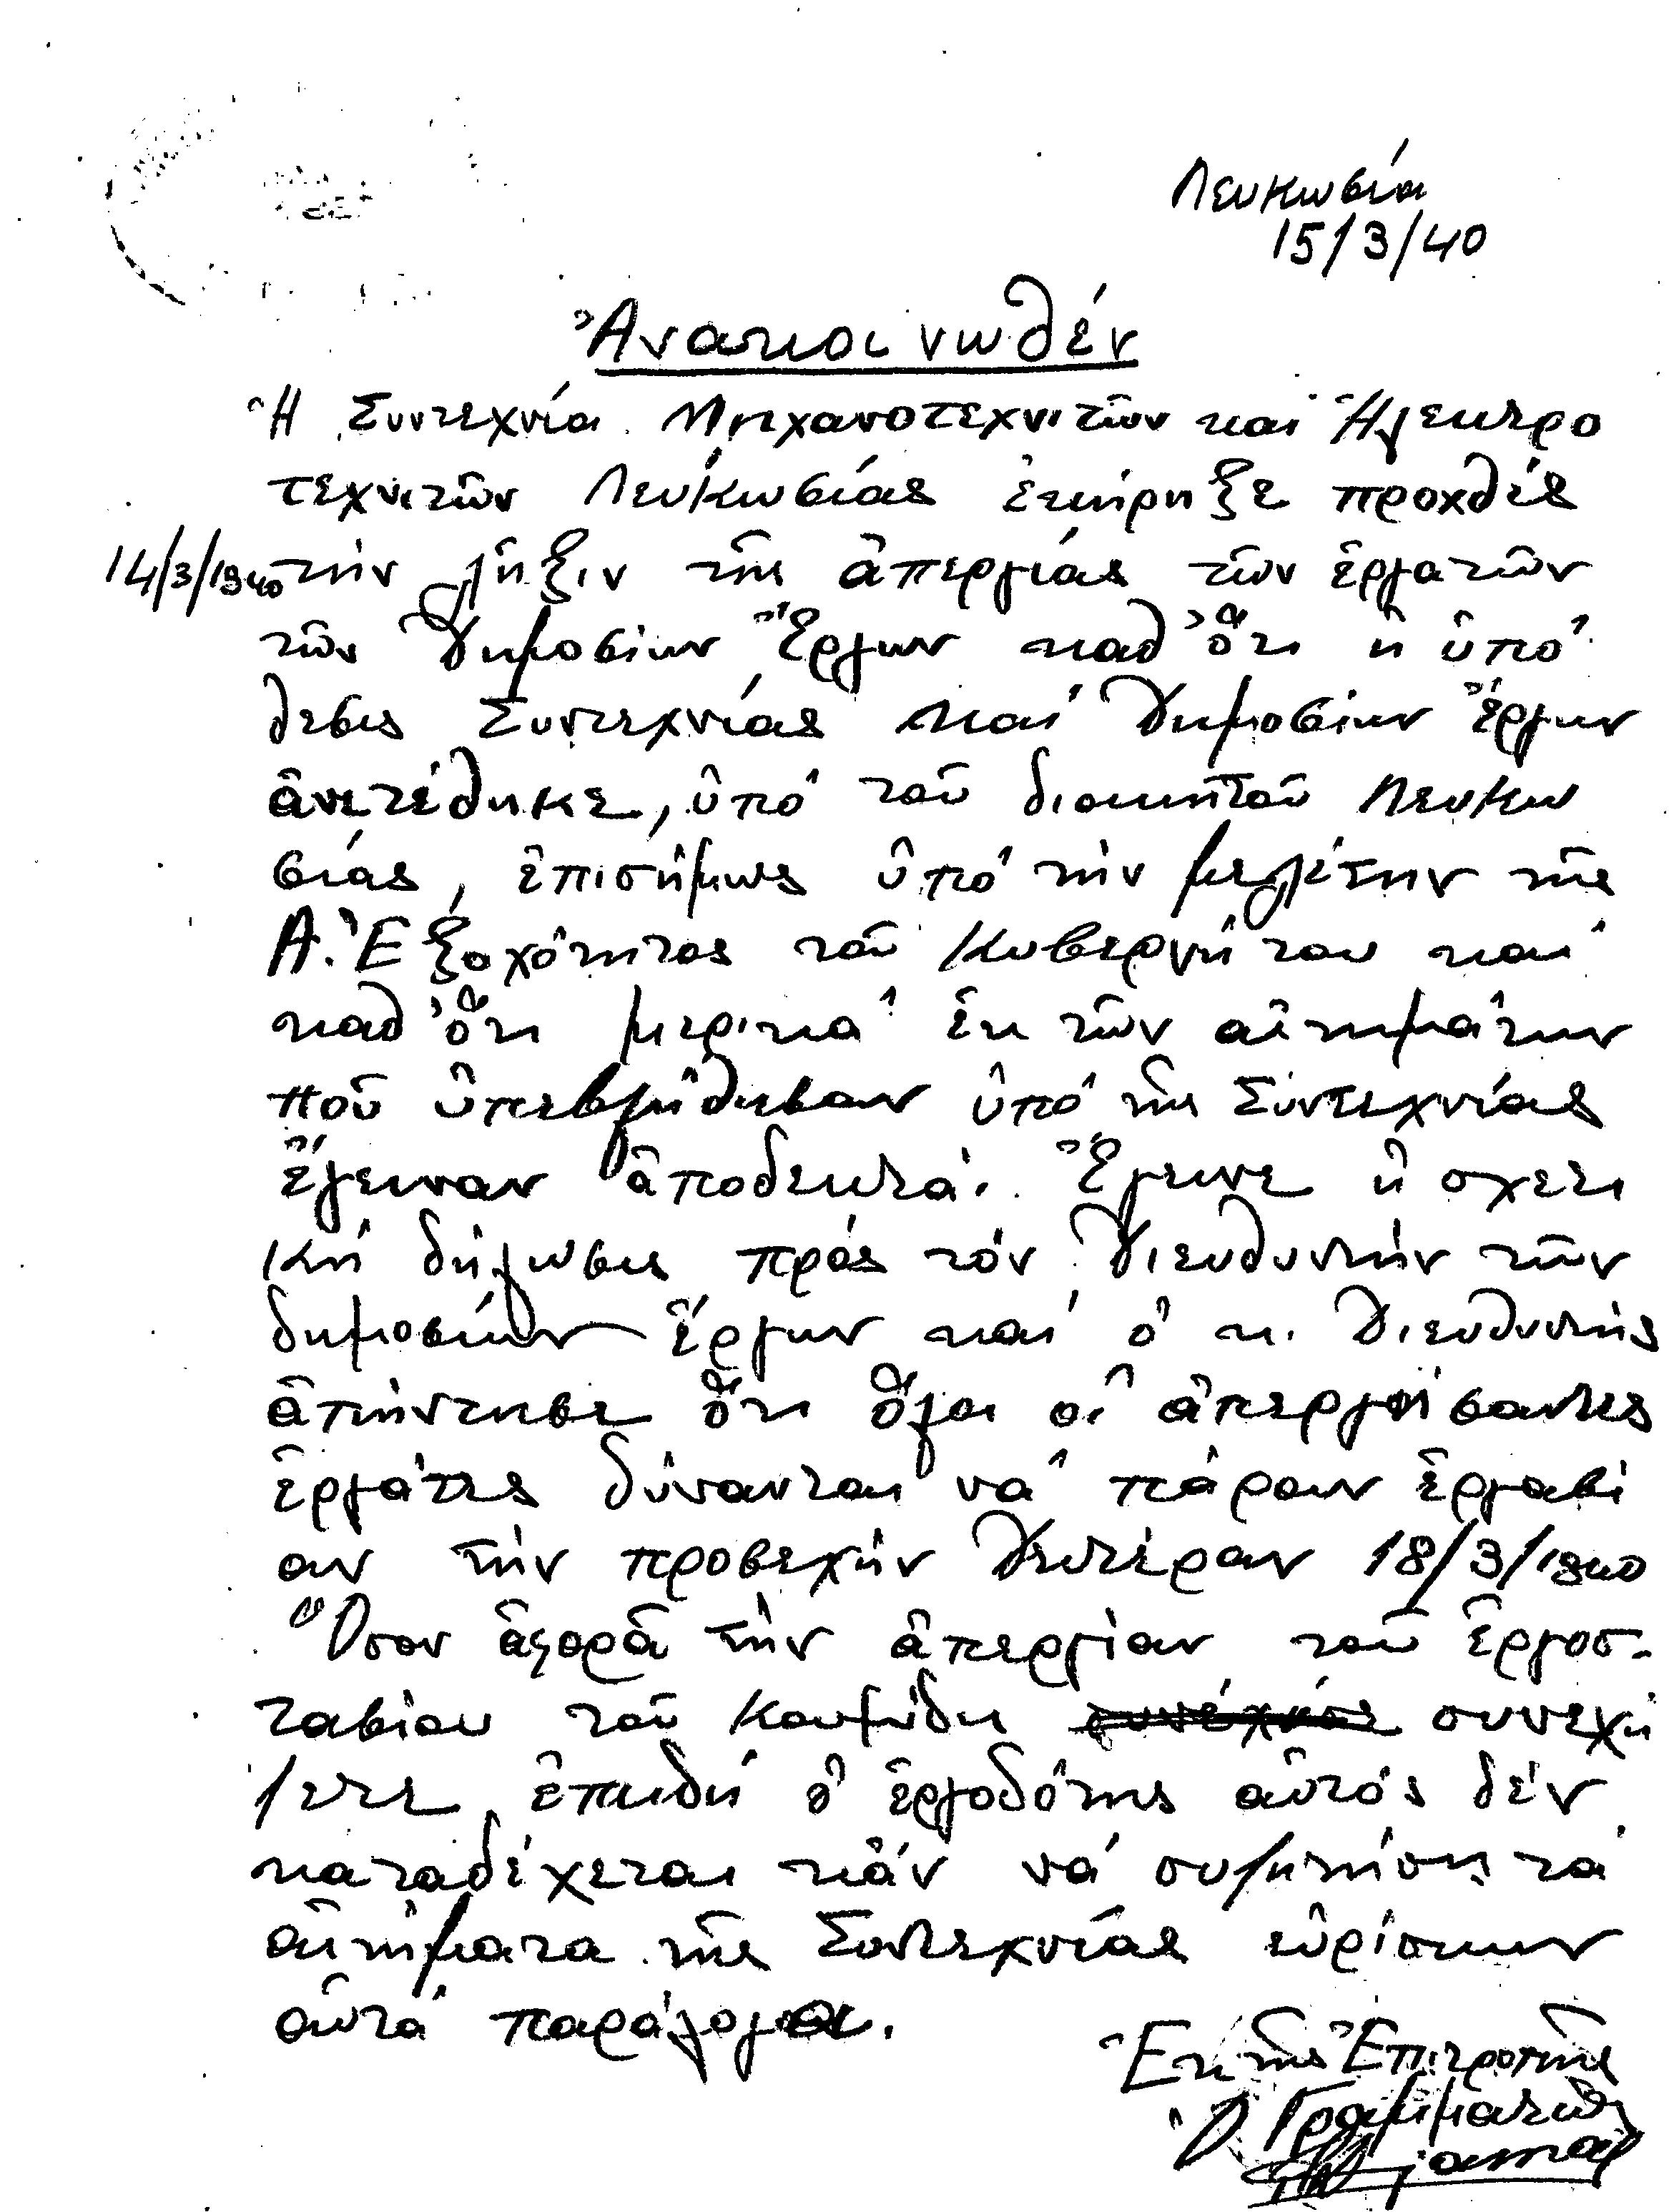 Λευκωσία
15/3/40
Ἀνακοινωθέν
Ἡ Συντεχνία Μηχανοτεχνιτῶν καί Ἠλεκτρο
τεχνιτῶν Λευκωσίας ἐκήρηξε προχθές
14/3/1940 τήν λῆξιν τῆς ἀπεργίας τῶν ἐργατῶν
τῶν Δημοσίων Ἔργων καθ' ὅτι ἡ ὑπό
θεσις Συντεχνίας καί Δημοσίων Ἔργων
ἀνετέθηκε, ὑπό τοῦ διοικητοῦ Λευκω
σίας, ἐπισήμως ὑπό τήν μελέτην τῆς
Α. Ἐξοχότητος τοῦ Κυβερνήτου καί
καθ' ὅτι μερικά ἐκ τῶν αἰτημάτων
ποῦ ὑπεβλήθησαν ὑπό τῆς Συντεχνίας
ἔγειναν ἀποδεκτά. Ἔγεινε ἡ σχετι
κή δήλωσις πρός τόν Διευθυντήν τῶν
δημοσίων ἔργων καί ὁ κ. Διευθυντής
ἀπήντησε ὅτι ὅλοι οἱ ἀπεργήσαντες
ἐργάτες δύνανται νά πάρουν ἐργασί
αν τήν προσεχῆν Δευτέραν 18/3/1940
Ὅσον ἀφορᾶ τήν ἀπεργίαν τοῦ ἐργοσ-
τασίου τοῦ Κουμίδη συνεχί
ζετε ἐπειδή ὁ ἐργοδότης αὐτός δέν
καταδέχεται κἄν νά συζητήσῃ τά
αἰτήματα τῆς Συντεχνίας εὑρίσκων
αὐτά παράλογα.
Ἐκ τῆς Ἐπιτροπῆς
Ὁ Γραμματεύς